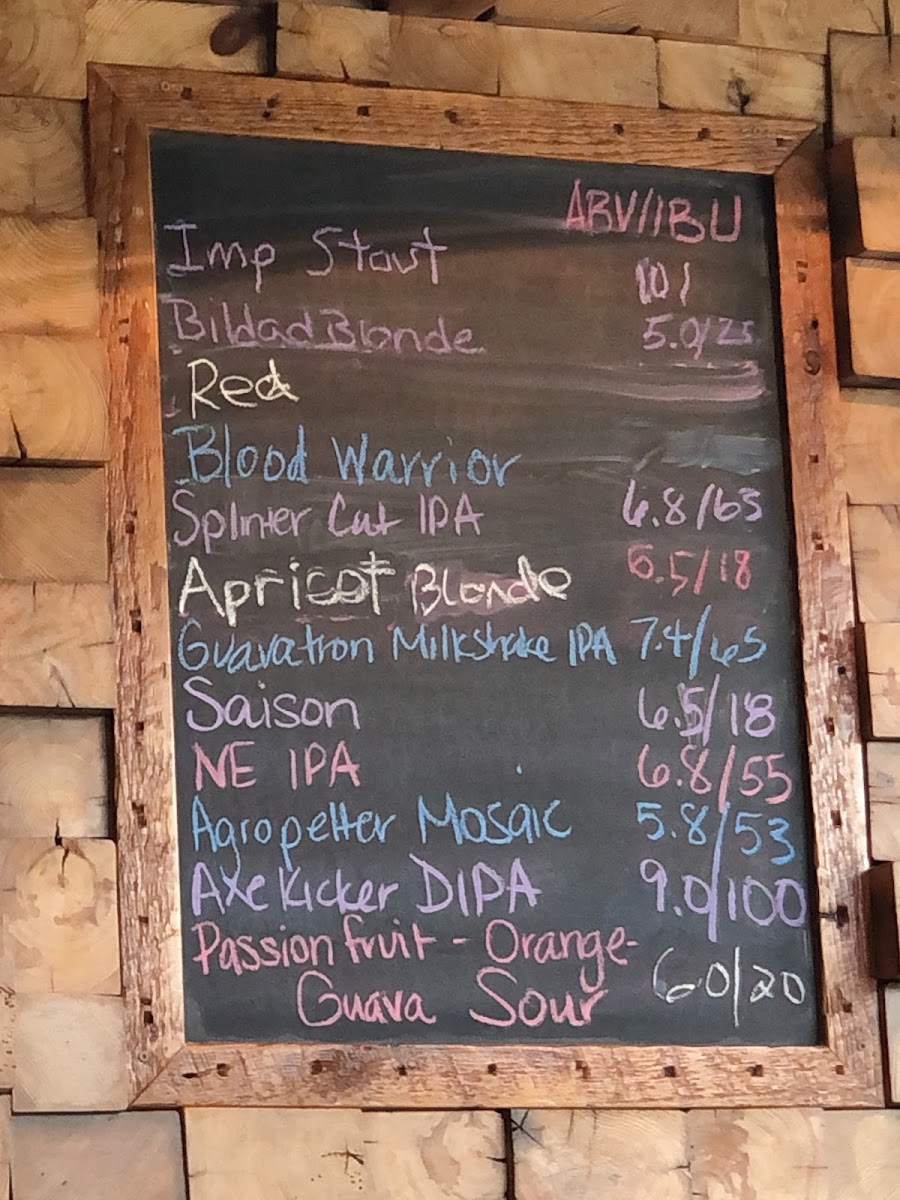 ABV/IBU
Imp Stout 10/
Bildad Blonde 5.0/25
Red
Blood Warrior
Splinter Cut IPA 6.8/63
Apricot Blonde 6.5/18
Guavatron Milkshake IPA 7.4/65
Saison 6.5/18
NE IPA 6.8/55
Agropelter Mosaic 5.8/53
Axe Kicker DIPA 9.0/100
Passion fruit - Orange-
Guava Sour 6.0/20